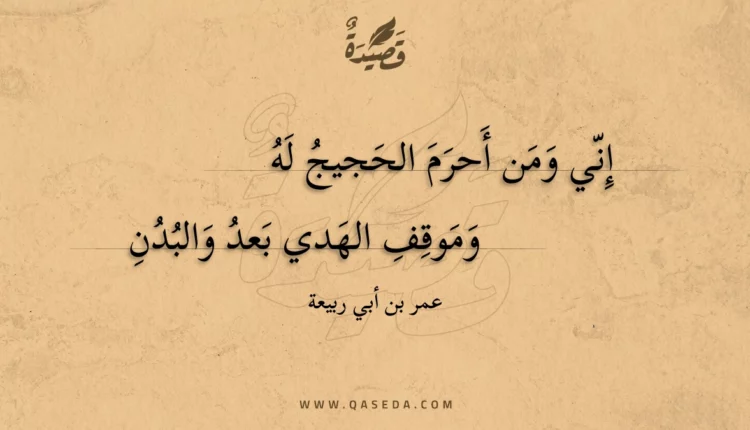 قَصِيْدَةٌ
إِنّي وَمَن أَحرَمَ الحَجيجُ لَهُ
وَمَوقِفِ الهَدي بَعدُ وَالبُدُنِ
عمر بن أبي ربيعة
WWW.QASEDA.COM